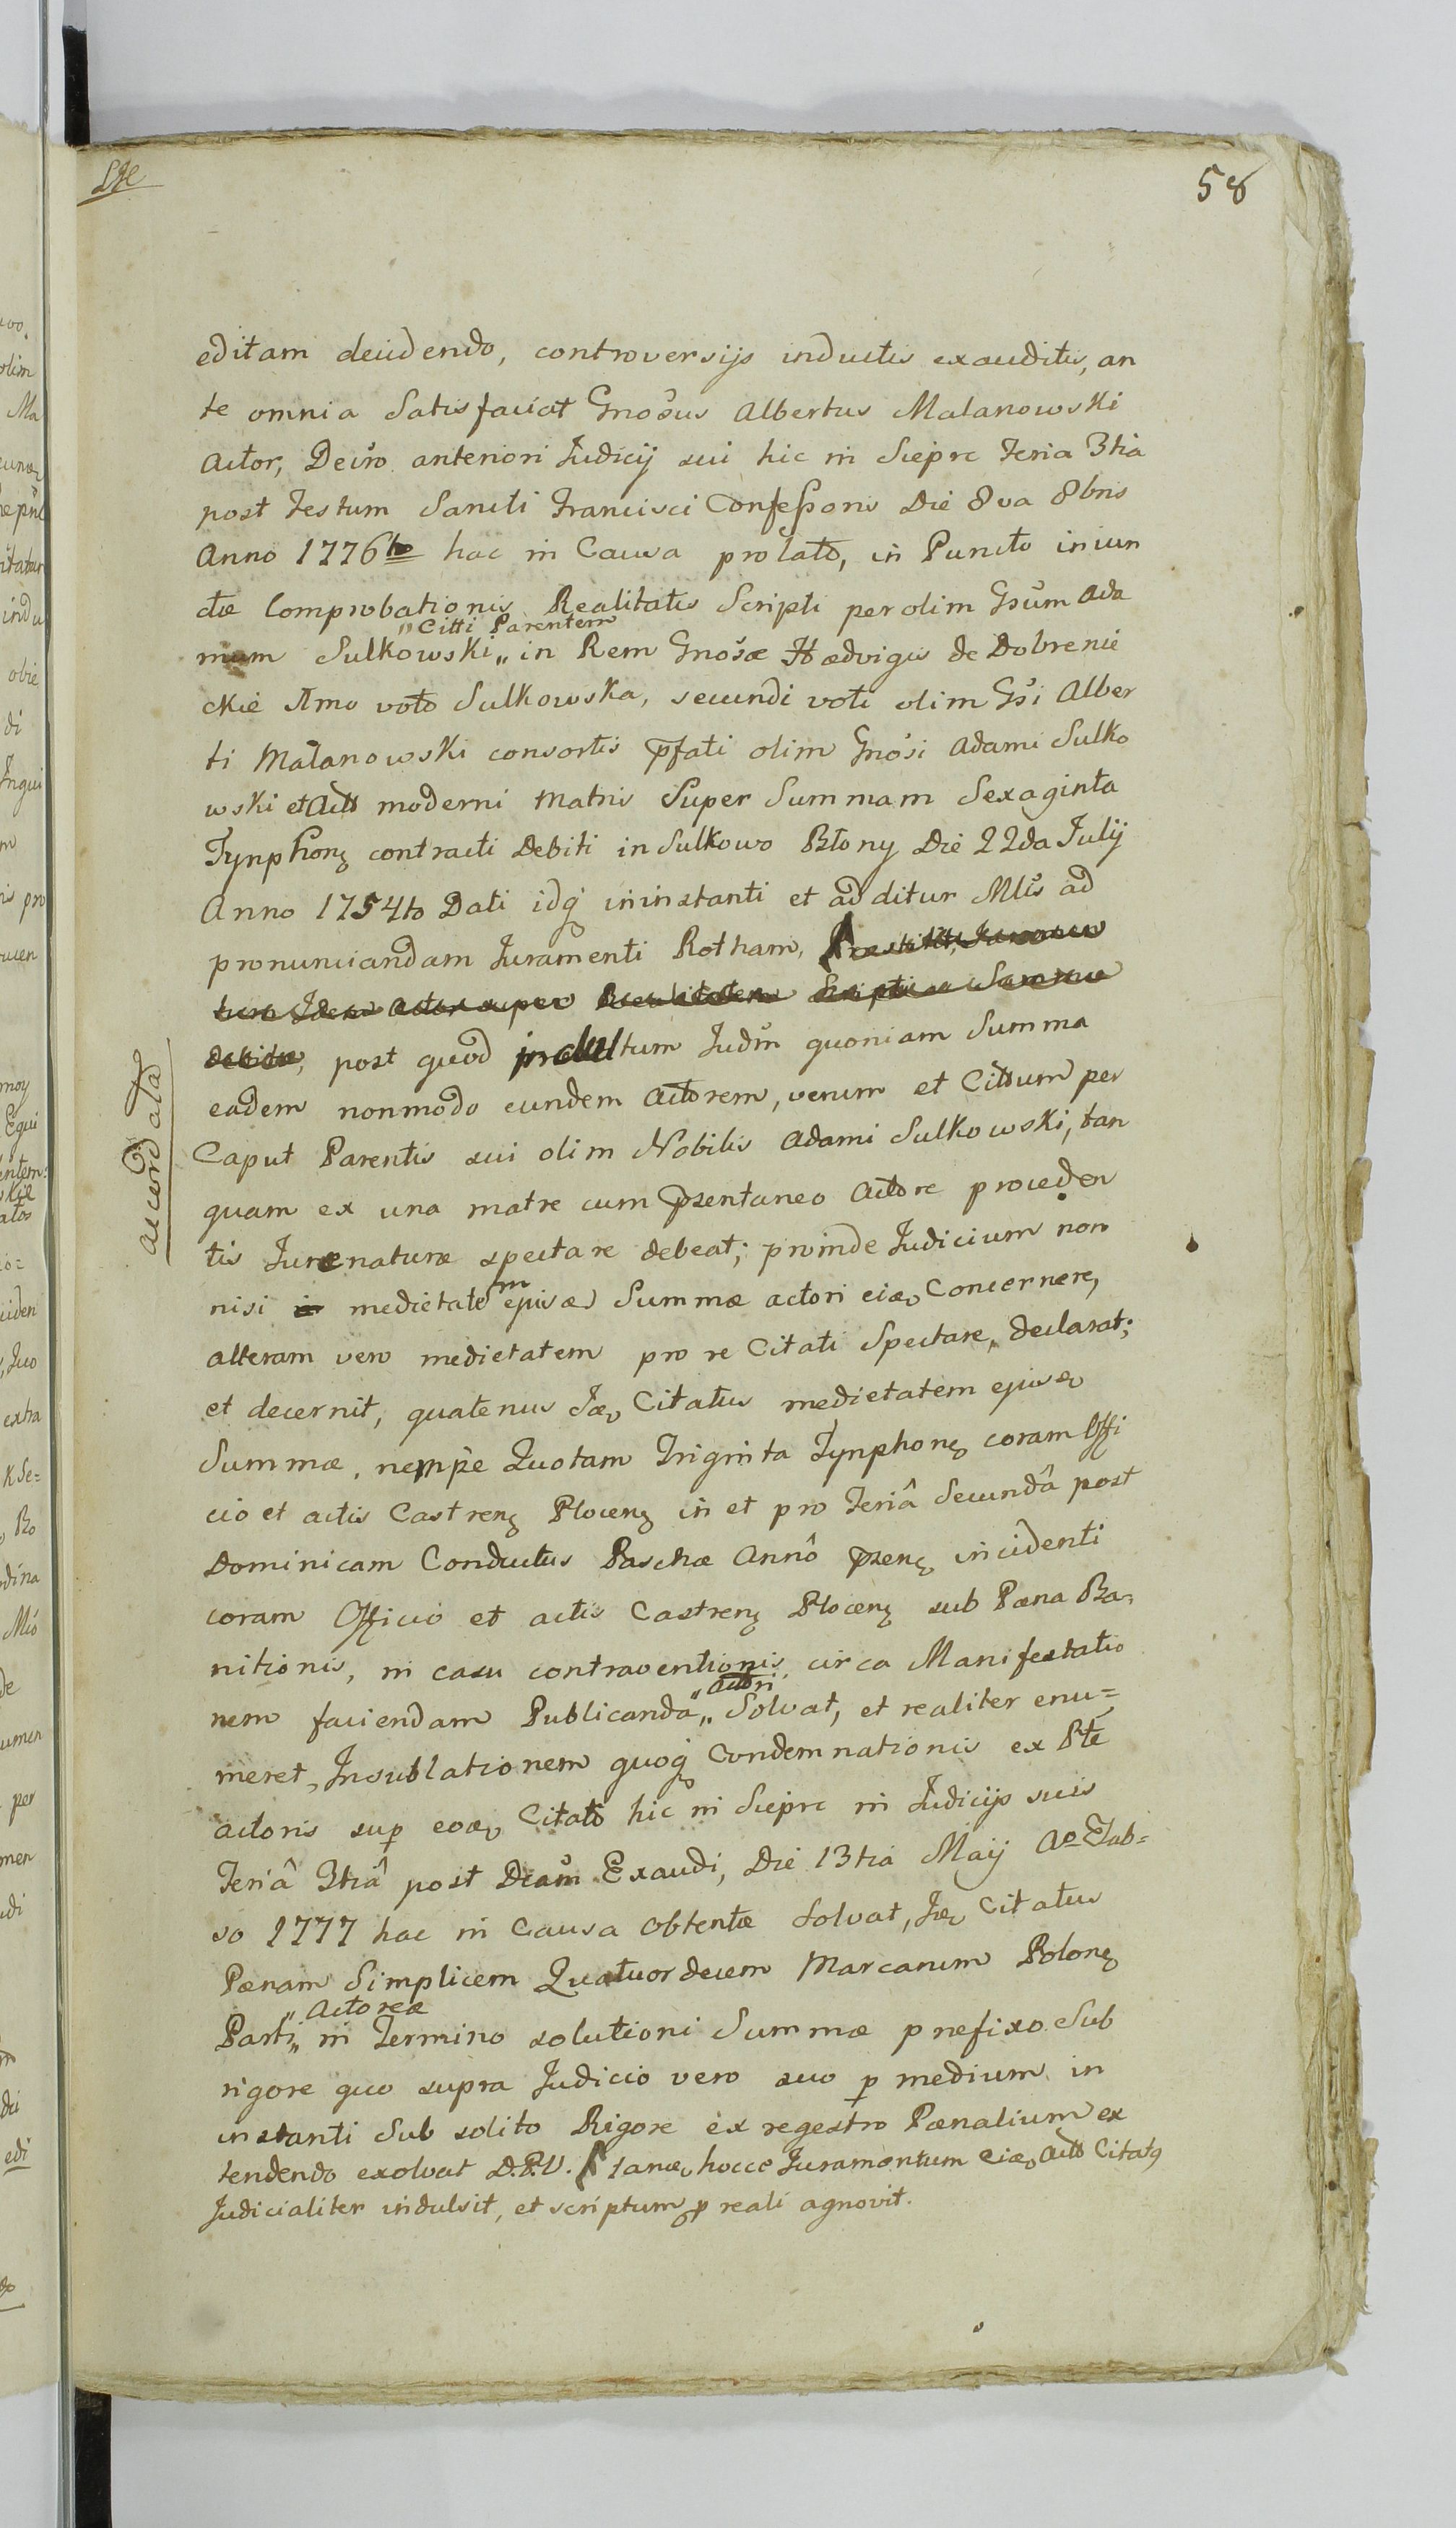 58
editam decidendo, controversijs inductis exauditis, an
te omnia Satisfaciat Gnosus Albertus Malanowski
Actor, Decro anteriori Judicij sui hic in Sieprc Feria 3tia
post Festum Sancti Francisci Confessoris Die 8va 8bris
Anno 1776to hac in Causa prolato, in Puncto iniun
ctæ Comprobationis Realitatis Scripti per olim Gsum Ada
„Citti Parentem
mum Sulkowski „ in Rem Gnosæ Hædvigis de Dobrenie
ckie 1mo voto Sulkowska, secundi voti olim Gsi Alber
ti Malanowski consortis pfati olim Gnosi Adami Sulko
wski et Actt moderni Matris Super Summam Sexaginta
Tynphonȝ contracti Debiti in Sulkowo Błony Die 22da Julij
Anno 1754to Dati idq ininstanti et additur Mlis ad
pronunciandam Juramenti Rotham,
post quod indultum Judm quoniam Summa
eadem nonmodo eundem Actorem, verum et Cittum per
Caput Parentis sui olim Nobilis Adami Sulkowski, tan
quam ex una matre cum psentaneo Actore proceden
tis Jure naturæ spectare debeat; proinde Judicium non
nisi medietatem ejusd Summæ actori eid Concernere,
alteram vero medietatem pro re Citati Spectare, declarat;
et decernit, quatenus Id Citatus medietatem ejusd
Summæ, nempe Quotam Triginta Tynphonȝ coram Offi
cio et actis Castrenȝ Plocenȝ in et pro Feriâ Secundâ post
Dominicam Conductus Paschæ Annô psenȝ incidenti
coram Officio et actis Castrenȝ Plocenȝ sub Pæna Ba=
nitionis, in casu contraventionis, circa Manifestatio
„Actori
nem faciendam Publicanda „ Solvat, et realiter enu=
meret, Insublationem quoq Condemnationis ex Pte
actoris sup eod Citato hic in Sieprc in Judicijs suis
Feriâ 3tiâ post Dcam Exaudi, Die 13tia Maij Ao Elab=
so 1777 hac in Causa Obtentæ Solvat, Id Citatus
Pænam Simplicem Quatuordecem Marcarum Polonȝ
„Actoreæ
Parti „ in Termino solutioni Summæ prefixo Sub
rigore quo supra Judicio vero suo p medium in
instanti Sub solito Rigore ex regestro Pænalium ex
tendendo exolvat D.P.V. hocce Juramentum eid Actt Citatȝ
Judicialiter indulsit, et scriptum p reali agnovit.